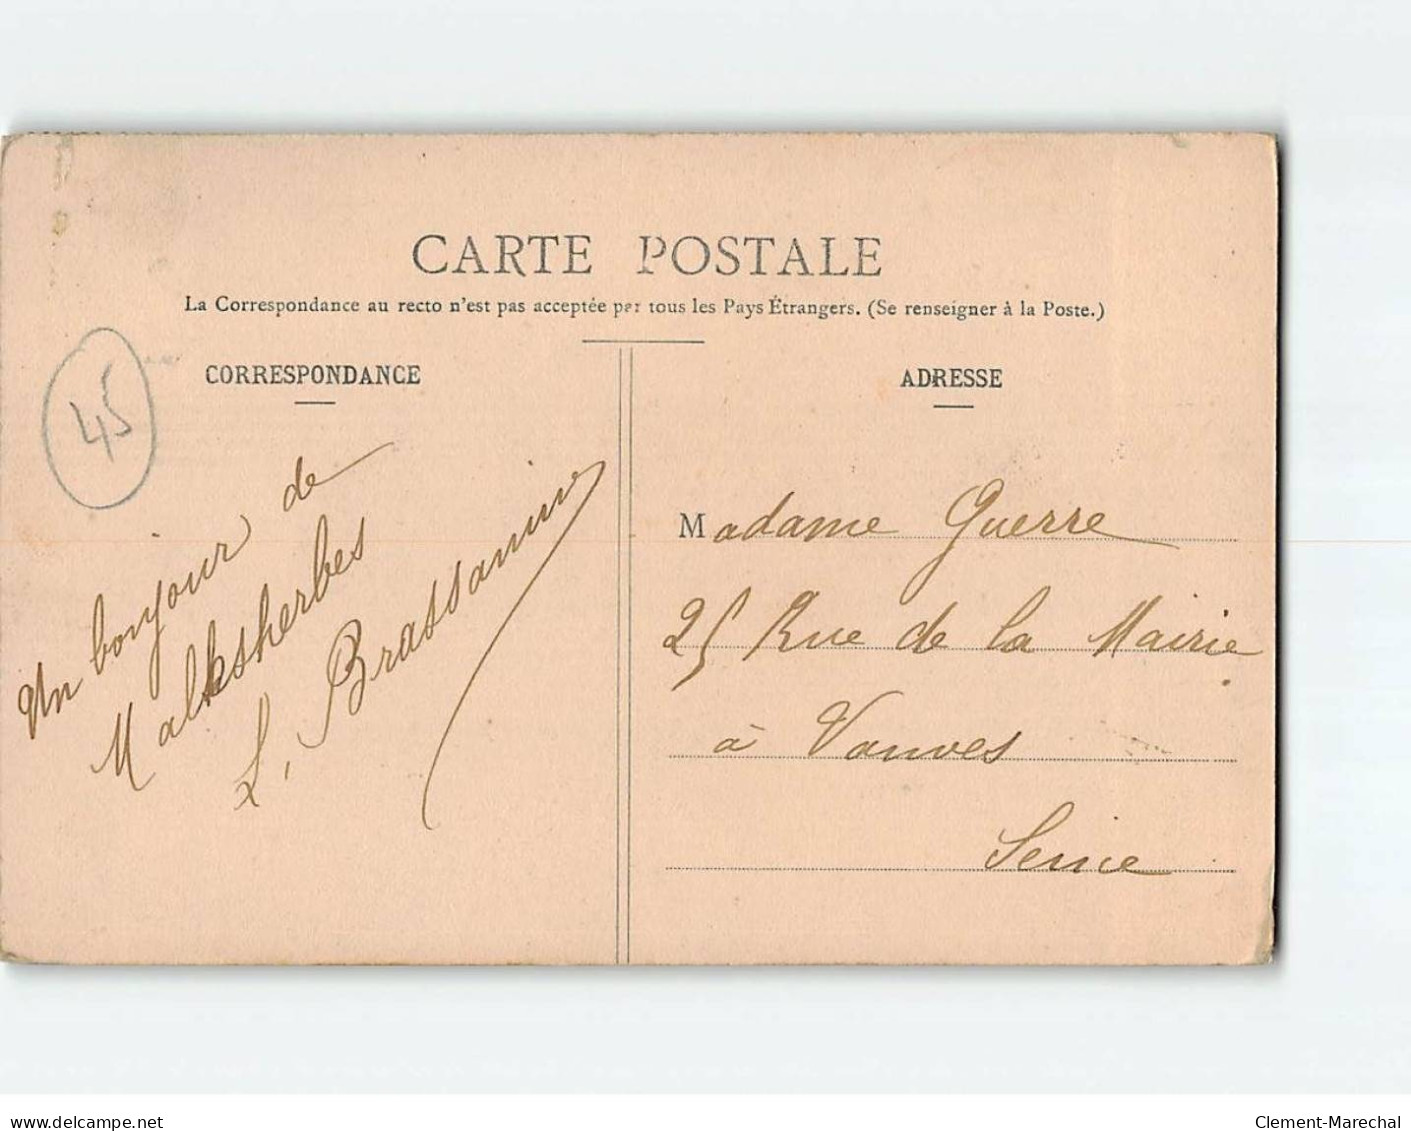 CARTE POSTALE
La Correspondance au recto n'est pas acceptée par tous les Pays Étrangers. (Se renseigner à la Poste.)
CORRESPONDANCE
45
Un bonjour de
Malesherbes
L. Brassamin
ADRESSE
Madame Guerre
25 Rue de la Mairie
à Vanves
Seine
www.delcampe.net
Clement-Marechal